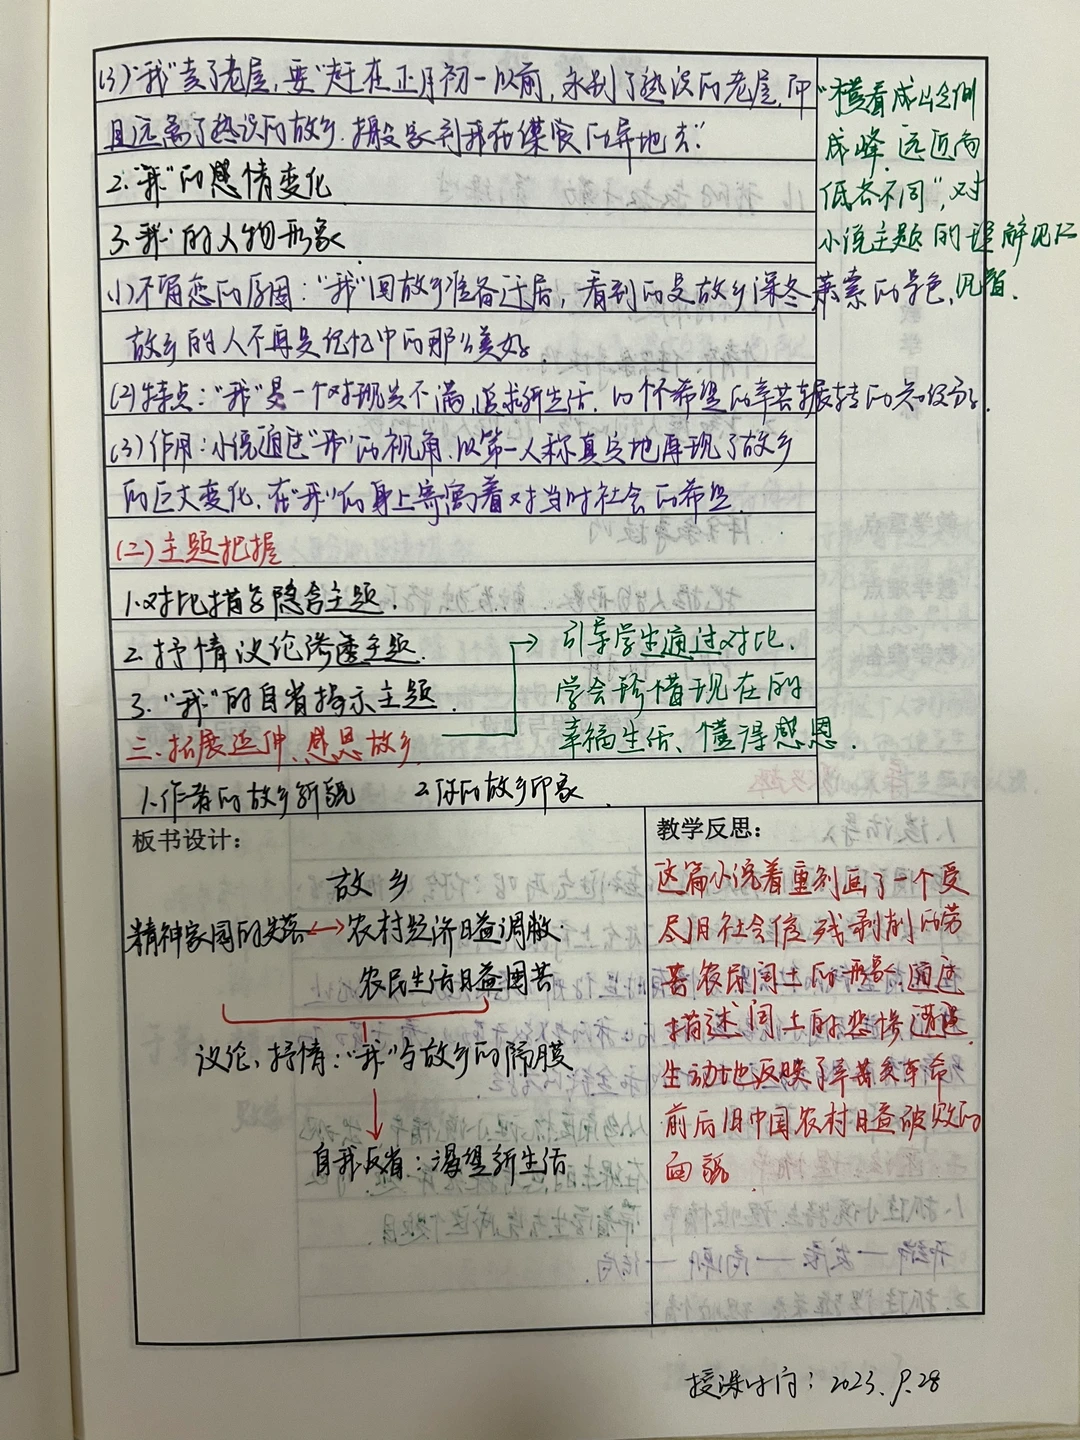 (3)“我”卖了老屋,要“赶在正月初一以前,永别了熟识的老屋,而
且远离了熟识的故乡,搬家到我在谋食的异地去”
2.“我”的感情变化
3.“我”的人物形象
(1)不留恋的原因:“我”回故乡准备迁居,看到的是故乡深冬萧索的景色,
故乡的人不再是记忆中的那么美好.
(2)特点:“我”是一个对现实不满,追求新生活,的怀希望的辛苦辗转的知识分子.
(3)作用:小说通过“我”的视角.以第一人称真实地再现了故乡
的巨大变化,在“我”的身上寄寓着对当时社会的希望.
(二)主题把握
1.对比描写隐含主题.
2.抒情议论渗透主题.
3.“我”的自省揭示主题.
三.拓展延伸、感恩故乡.
1.作者的故乡新貌 2.你的故乡印象.
“横看成岭侧
成峰,远近高
低各不同”,对
小说主题的理解见仁
见智.
引导学生通过对比,
学会珍惜现在的
幸福生活、懂得感恩.
板书设计:
故乡
精神家园的失落↔农村经济日益凋敝
农民生活日益困苦
议论、抒情:“我”与故乡的隔膜
自我反省:渴望新生活
教学反思:
这篇小说着重刻画了一个受
尽旧社会摧残剥削的劳
苦农民闰土的形象,通过
描述闰土的悲惨遭遇
生动地反映了辛亥革命
前后旧中国农村日益破败的
面貌.
授课时间:2023.9.28